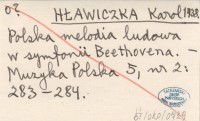 o?
HŁAWICZKA Karol 1938.
Polska melodia ludowa
w symfonii Beethovena. -
Muzyka Polska 5, nr 2:
283-284.